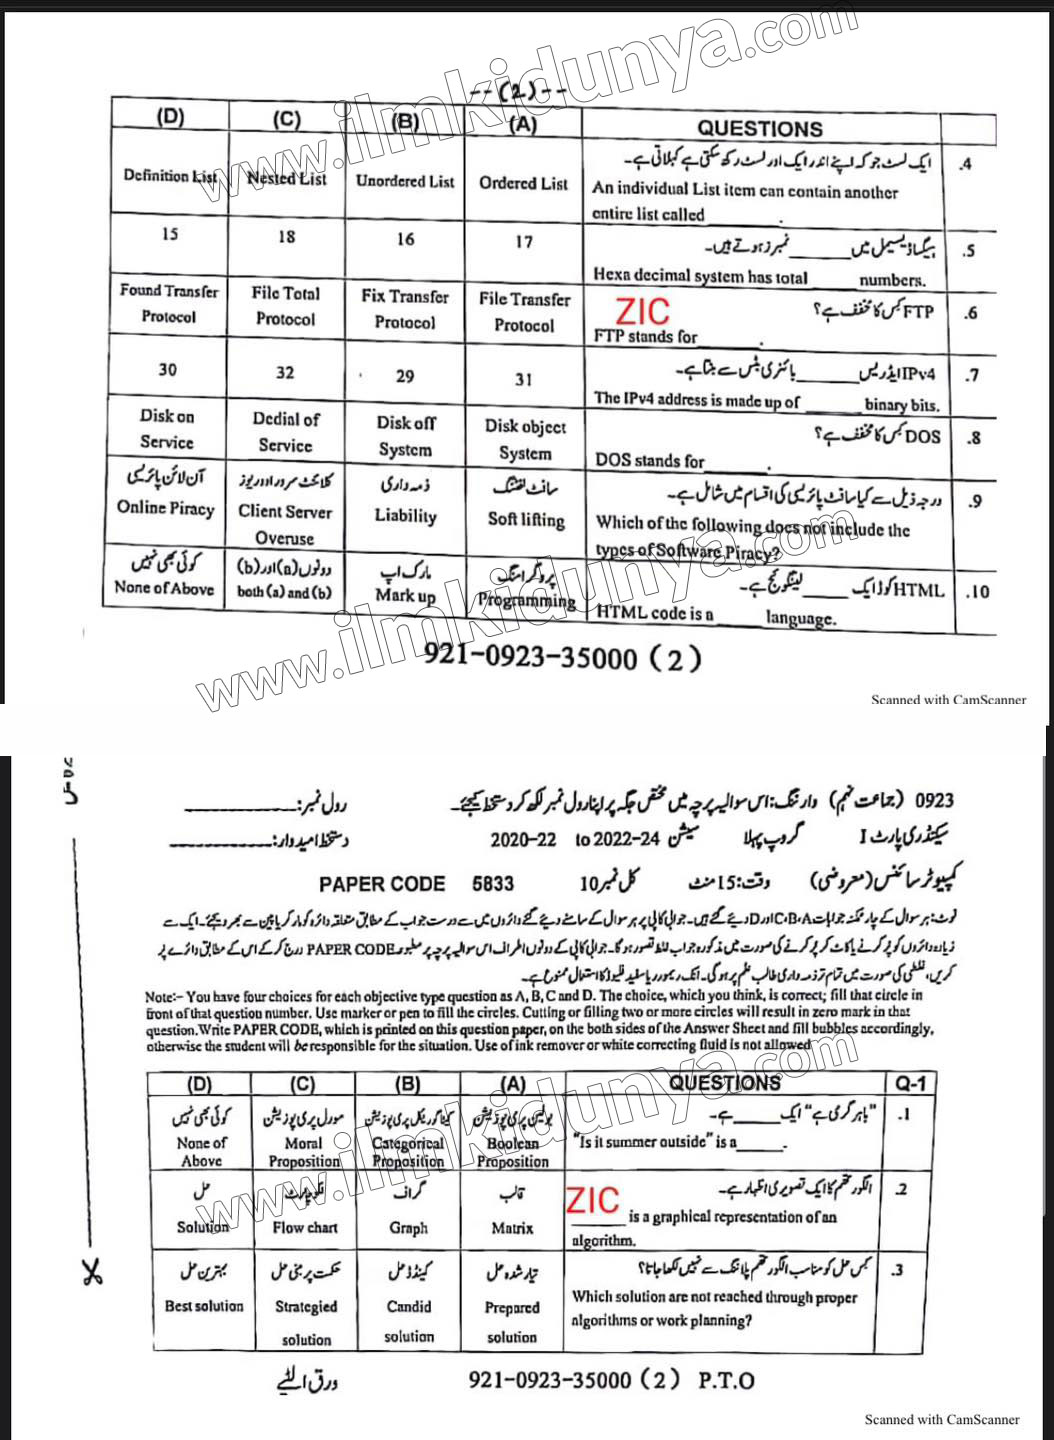 --(2)--
(D) (C) (B) (A) QUESTIONS
ایک لسٹ جو کہ اپنے اندر ایک اور لسٹ رکھ سکتی ہے کہلاتی ہے۔ .4
Definition List Nested List Unordered List Ordered List An individual List item can contain another
entire list called ________.
15 18 16 17 ہیگزا ڈیسیمل میں ______ نمبرز ہوتے ہیں۔ .5
Hexa decimal system has total ______ numbers.
Found Transfer File Total Fix Transfer File Transfer ZIC FTP کس کا مخفف ہے؟ .6
Protocol Protocol Protocol Protocol FTP stands for ______.
30 32 29 31 IPv4 ایڈریس ______ بائنری بٹس سے بنتا ہے۔ .7
The IPv4 address is made up of ______ binary bits.
Disk on Dedial of Disk off Disk object DOS کس کا مخفف ہے؟ .8
Service Service System System DOS stands for ______.
آن لائن پائریسی کلائنٹ سرور اوور یوز ذمہ داری سافٹ لفٹنگ درجہ ذیل سے کیا سافٹ پائریسی کی اقسام میں شامل ہے۔ .9
Online Piracy Client Server Liability Soft lifting Which of the following does not include the
Overuse types of Software Piracy?
کوئی بھی نہیں دونوں (a) اور (b) مارک اپ پروگرامنگ HTML کوڈ ایک ____ لینگوئج ہے۔ .10
None of Above both (a) and (b) Mark up Programming HTML code is a ______ language.
921-0923-35000 (2)
www.ilmkidunya.com
www.ilmkidunya.com
Scanned with CamScanner
0923 (جماعت نہم) وارننگ: اس سوالیہ پرچہ میں مختص جگہ پر اپنا رول نمبر لکھ کر دستخط کیجئے۔ رول نمبر: ________
سیکنڈری پارٹ I گروپ پہلا سیشن 2020-22 to 2022-24 دستخط امیدوار: ________
کمپیوٹر سائنس (معروضی) وقت: 15 منٹ کل نمبر 10 PAPER CODE 5833
نوٹ: ہر سوال کے چار ممکنہ جوابات C،B،A اور D دیئے گئے ہیں۔ جوابی کاپی پر ہر سوال کے سامنے دیئے گئے دائروں میں سے درست جواب کے مطابق متعلقہ دائرہ کو مارکر یا پین سے بھر دیجئے۔ ایک سے
زیادہ دائروں کو پُر کرنے یا کاٹ کر پُر کرنے کی صورت میں مذکورہ جواب غلط تصور ہوگا۔ جوابی کاپی کے دونوں اطراف اس سوالیہ پرچہ پر مطبوعہ PAPER CODE درج کر کے اس کے مطابق دائرے پُر
کریں، غلطی کی صورت میں تمام تر ذمہ داری طالب علم پر ہوگی۔ انک ریموور یا سفید فلیوڈ کا استعمال ممنوع ہے۔
Note:- You have four choices for each objective type question as A, B, C and D. The choice, which you think, is correct; fill that circle in
front of that question number. Use marker or pen to fill the circles. Cutting or filling two or more circles will result in zero mark in that
question. Write PAPER CODE, which is printed on this question paper, on the both sides of the Answer Sheet and fill bubbles accordingly,
otherwise the student will be responsible for the situation. Use of ink remover or white correcting fluid is not allowed
(D) (C) (B) (A) QUESTIONS Q-1
کوئی بھی نہیں مورل پری پوزیشن کیٹاگوریکل پری پوزیشن بولین پری پوزیشن "باہر گرمی ہے" ایک ______ ہے۔ .1
None of Moral Categorical Boolean "Is it summer outside" is a ______.
Above Proposition Proposition Proposition
حل فلو چارٹ گراف قالب الگورتھم کا ایک تصویری اظہار ہے۔ .2
Solution Flow chart Graph Matrix ZIC ______ is a graphical representation of an
algorithm.
بہترین حل حکمت پر مبنی حل کینڈڈ حل تیار شدہ حل کس حل کو مناسب الگورتھم پلاننگ سے نہیں لکھا جاتا؟ .3
Best solution Strategied Candid Prepared Which solution are not reached through proper
solution solution solution algorithms or work planning?
ورق الٹیے 921-0923-35000 (2) P.T.O
www.ilmkidunya.com
Scanned with CamScanner